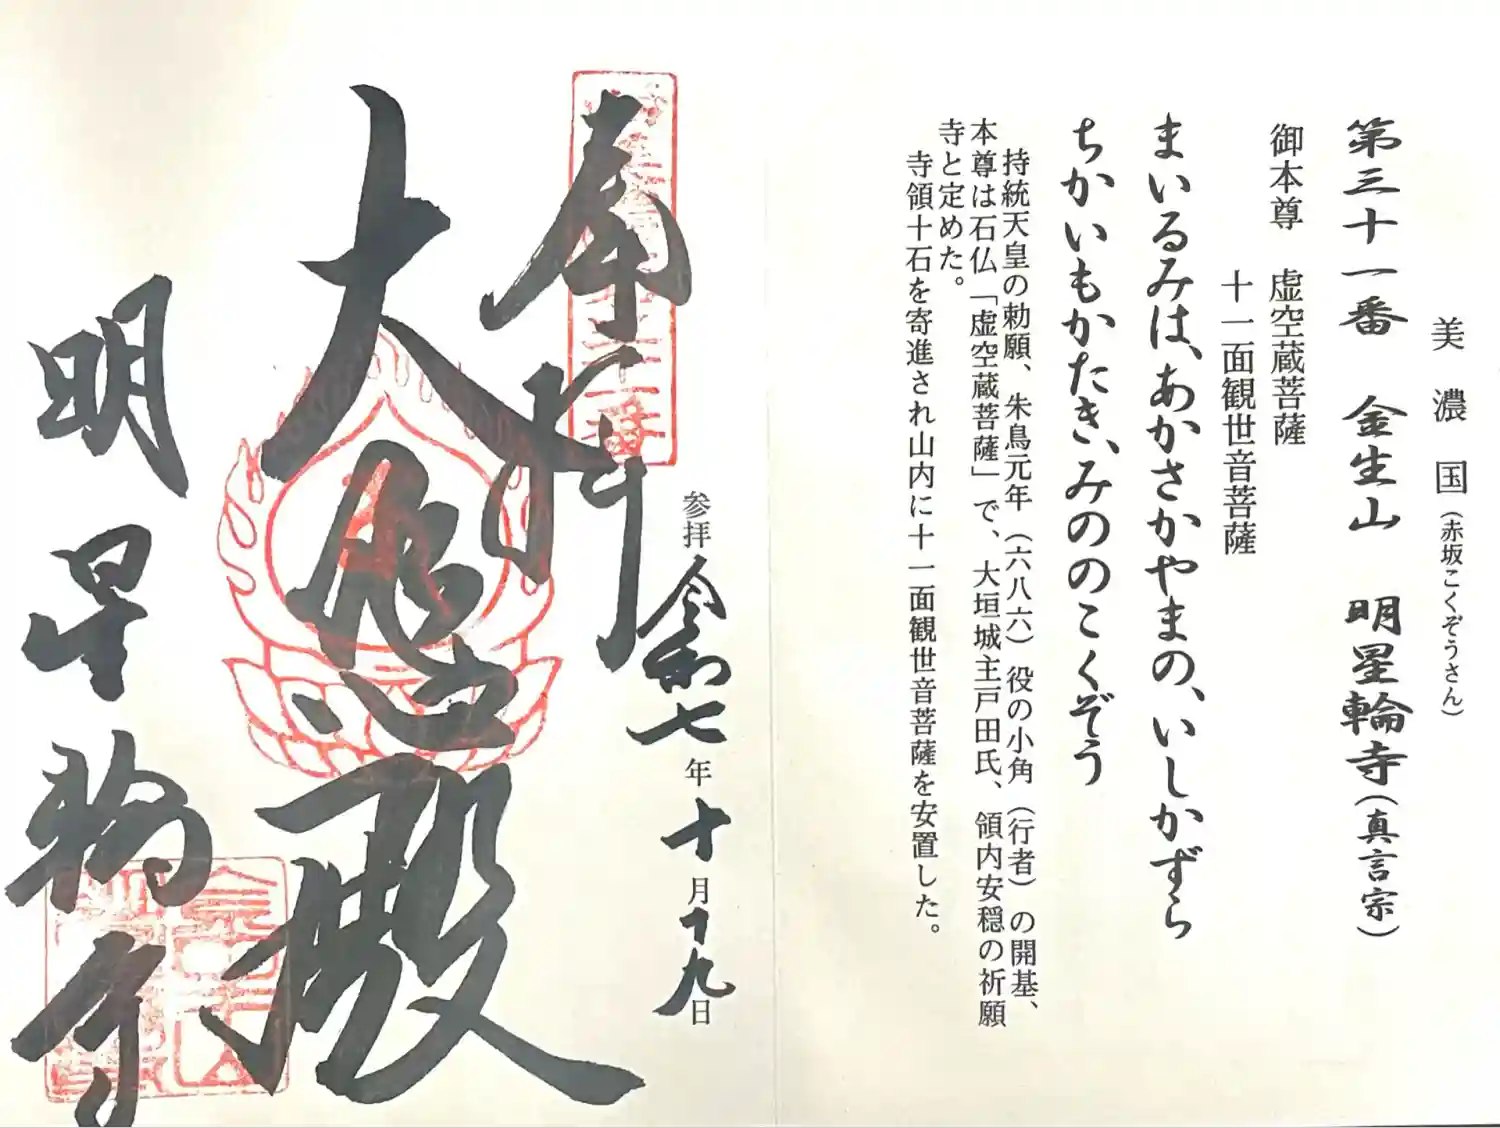 美濃国（赤坂こくぞうさん）
第三十一番　金生山　明星輪寺（真言宗）
御本尊　虚空蔵菩薩
十一面観世音菩薩
まいるみは、あかさかやまの、いしかずら
ちかいもかたき、みののこくぞう
持統天皇の勅願、朱鳥元年（六八六）役の小角（行者）の開基、
本尊は石仏「虚空蔵菩薩」で、大垣城主戸田氏、領内安穏の祈願
寺と定めた。
寺領十石を寄進され山内に十一面観世音菩薩を安置した。
参拝 令和七年十月十九日
奉拝
大悲殿
明星輪寺